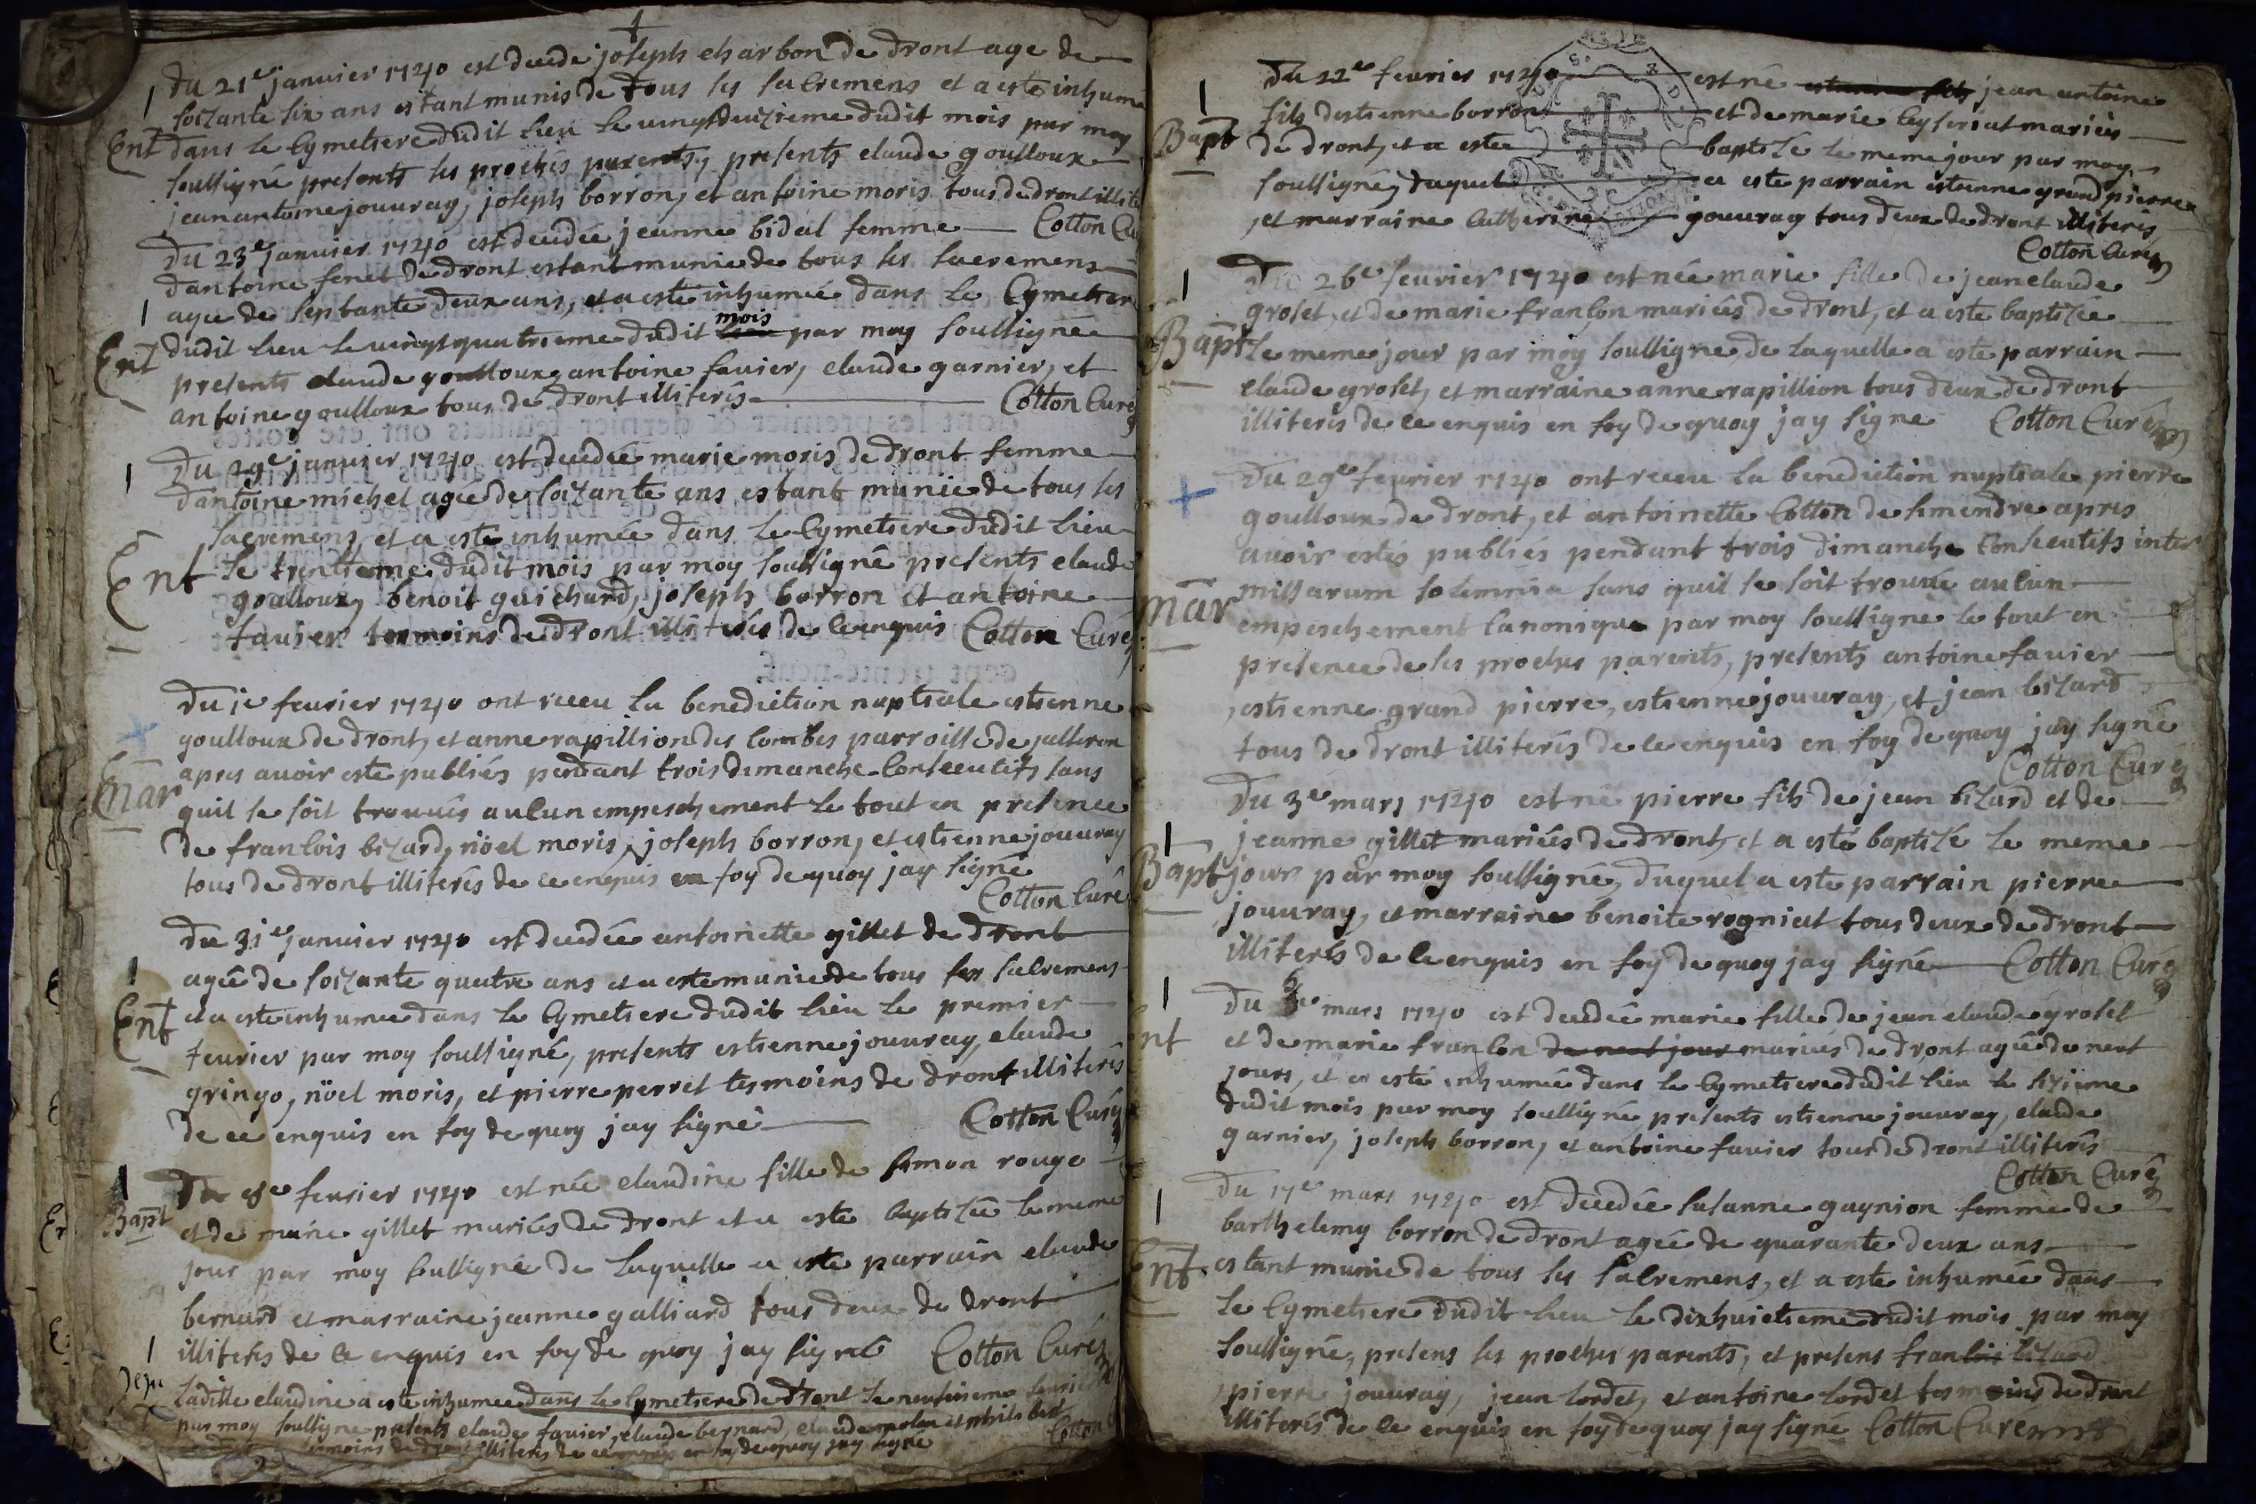 du 21e janvier 1740 est decede joseph charbon de dront age de
soizante six ans estant munis de tous les sacremens et a esté inhumé
Ent dans le cymetiere dudit lieu le vingtdeuzieme dudit mois par moy
soussigné presents les proches parents, presents claude goulloux
jean antoine jouvray, joseph borron, et antoine moris tous de dront illite
Cotton Cu
du 23e janvier 1740 est decedée jeanne bidal femme
dantoine fenet de dront estant munie de tous les sacremens
agee de septante deux ans, et a este inhumée dans le Cymetiere
Ent dudit lieu le vingt quatrieme dudit mois par moy soussigné
presents claude goulloux, antoine favier, claude garnier, et
antoine goulloux tous de dront illiterés Cotton Curé
Du 29e janvier 1740 est decedée marie moris de dront femme
dantoine michel agee de soizante ans estant munie de tous les
sacremens, et a este inhumée dans le Cymetiere dudit lieu
Ent le trentieme dudit mois par moy soussigné presents claude
goulloux, benoit guichard, joseph borron et antoine
favier tesmoins de dront illiterés de ce enquis Cotton Curé
Du 1e fevrier 1740 ont receu la benediction nuptiale estienne
goulloux de dront, et anne rapillion des combes parroisse de
Mar apres avoir este publiés pendant trois dimanche consecutifs sans
quil se soit trouvés aucun empeschement le tout en presence
de francois bizard, nöel moris, joseph borron, et estienne jouvray
tous de dront illiterés de ce enquis en foy de quoy jay signé
Cotton Curé
Du 31e janvier 1740 est decedée antoinette gillet de dront
agée de soizante quatre ans et a este munie de tous ses sacremens
Ent et a este inhumee dans le Cymetiere dudit lieu le premier
fevrier par moy soussigné, presents estienne jouvray, claude
gringo, nöel moris, et pierre perret tesmoins de dront illiterés
de ce enquis en foy de quoy jay signé Cotton Curé
Du 8e fevrier 1740 est née claudine fille de simon rouge
Bapt et de marie gillet mariés de dront et a este baptizée le meme
jour par moy soussigné de laquelle a este parrain claude
bernard et marraine jeanne galliard tous deux de dront
illiterés de ce enquis en foy de quoy jay signé Cotton Curé
laditte claudine a este inhumee dans le Cymetiere de dront le neufvieme fevrier
par moy soussigné presents claude favier, claude bernard, claude
tesmoins de dront illiterés de ce enquis en foy de quoy jay signé Cotton
Du 22e fevrier 1740 est né jean antoine
fils destienne borron et de marie Ceyseriat mariés
Bapt de dront, et a estee baptizé le meme jour par moy
soussigné, duquel a este parrain estienne grand pierre
et marraine Catherine jouvray tous deux de dront illiterés
Cotton Curé
Du 26e fevrier 1740 est née marie fille de jean claude
groset, et de marie françon mariés de dront, et a este baptizée
Bapt le meme jour par moy soussigné de laquelle a este parrain
claude groset, et marraine anne rapillion tous deux de dront
illiterés de ce enquis en foy de quoy jay signe Cotton Curé
Du 29e fevrier 1740 ont receu la benediction nuptiale pierre
goulloux de dront, et antoinette Cotton de simendre apres
avoir estés publiés pendant trois dimanche consecutifs inter
Mar missarum solemnia sans quil se soit trouvée aucun
empeschement canonique par moy soussigné le tout en
presence de ses proches parents, presents antoine favier
estienne grand pierre, estienne jouvray, et jean bizard
tous de dront illiterés de ce enquis en foy de quoy jay signé
Cotton Curé
Du 3e mars 1740 est né pierre fils de jean bizard et de
jeanne gillet mariés de dront, et a esté baptizé le meme
Bapt jour par moy soussigné, duquel a este parrain pierre
jouvray, et marraine benoite rogniat tous deux de dront
illiterés de ce enquis en foy de quoy jay signé Cotton Curé
Du e mars 1740 est decedée marie fille de jean claude groset
Ent et de marie françon de neuf jour mariés de dront agée de neuf
jours, et a esté inhumée dans le Cymetiere dudit lieu le sizieme
dudit mois par moy soussigné presents estienne jouvray, claude
garnier, joseph borron, et antoine favier tous de dront illiterés
Cotton Curé
Du 17e mars 1740 est decedée susanne gaynion femme de
barthelemy borron de dront agée de quarante deux ans
Ent estant munie de tous les sacremens, et a este inhumée dans
le Cymetiere dudit lieu le dixhuictieme dudit mois par moy
soussigné, presens les proches parents, et presens francois bizard
pierre jouvray, jean cordet, et antoine cordet tesmoins de dront
illiterés de ce enquis en foy de quoy jay signé Cotton Curé